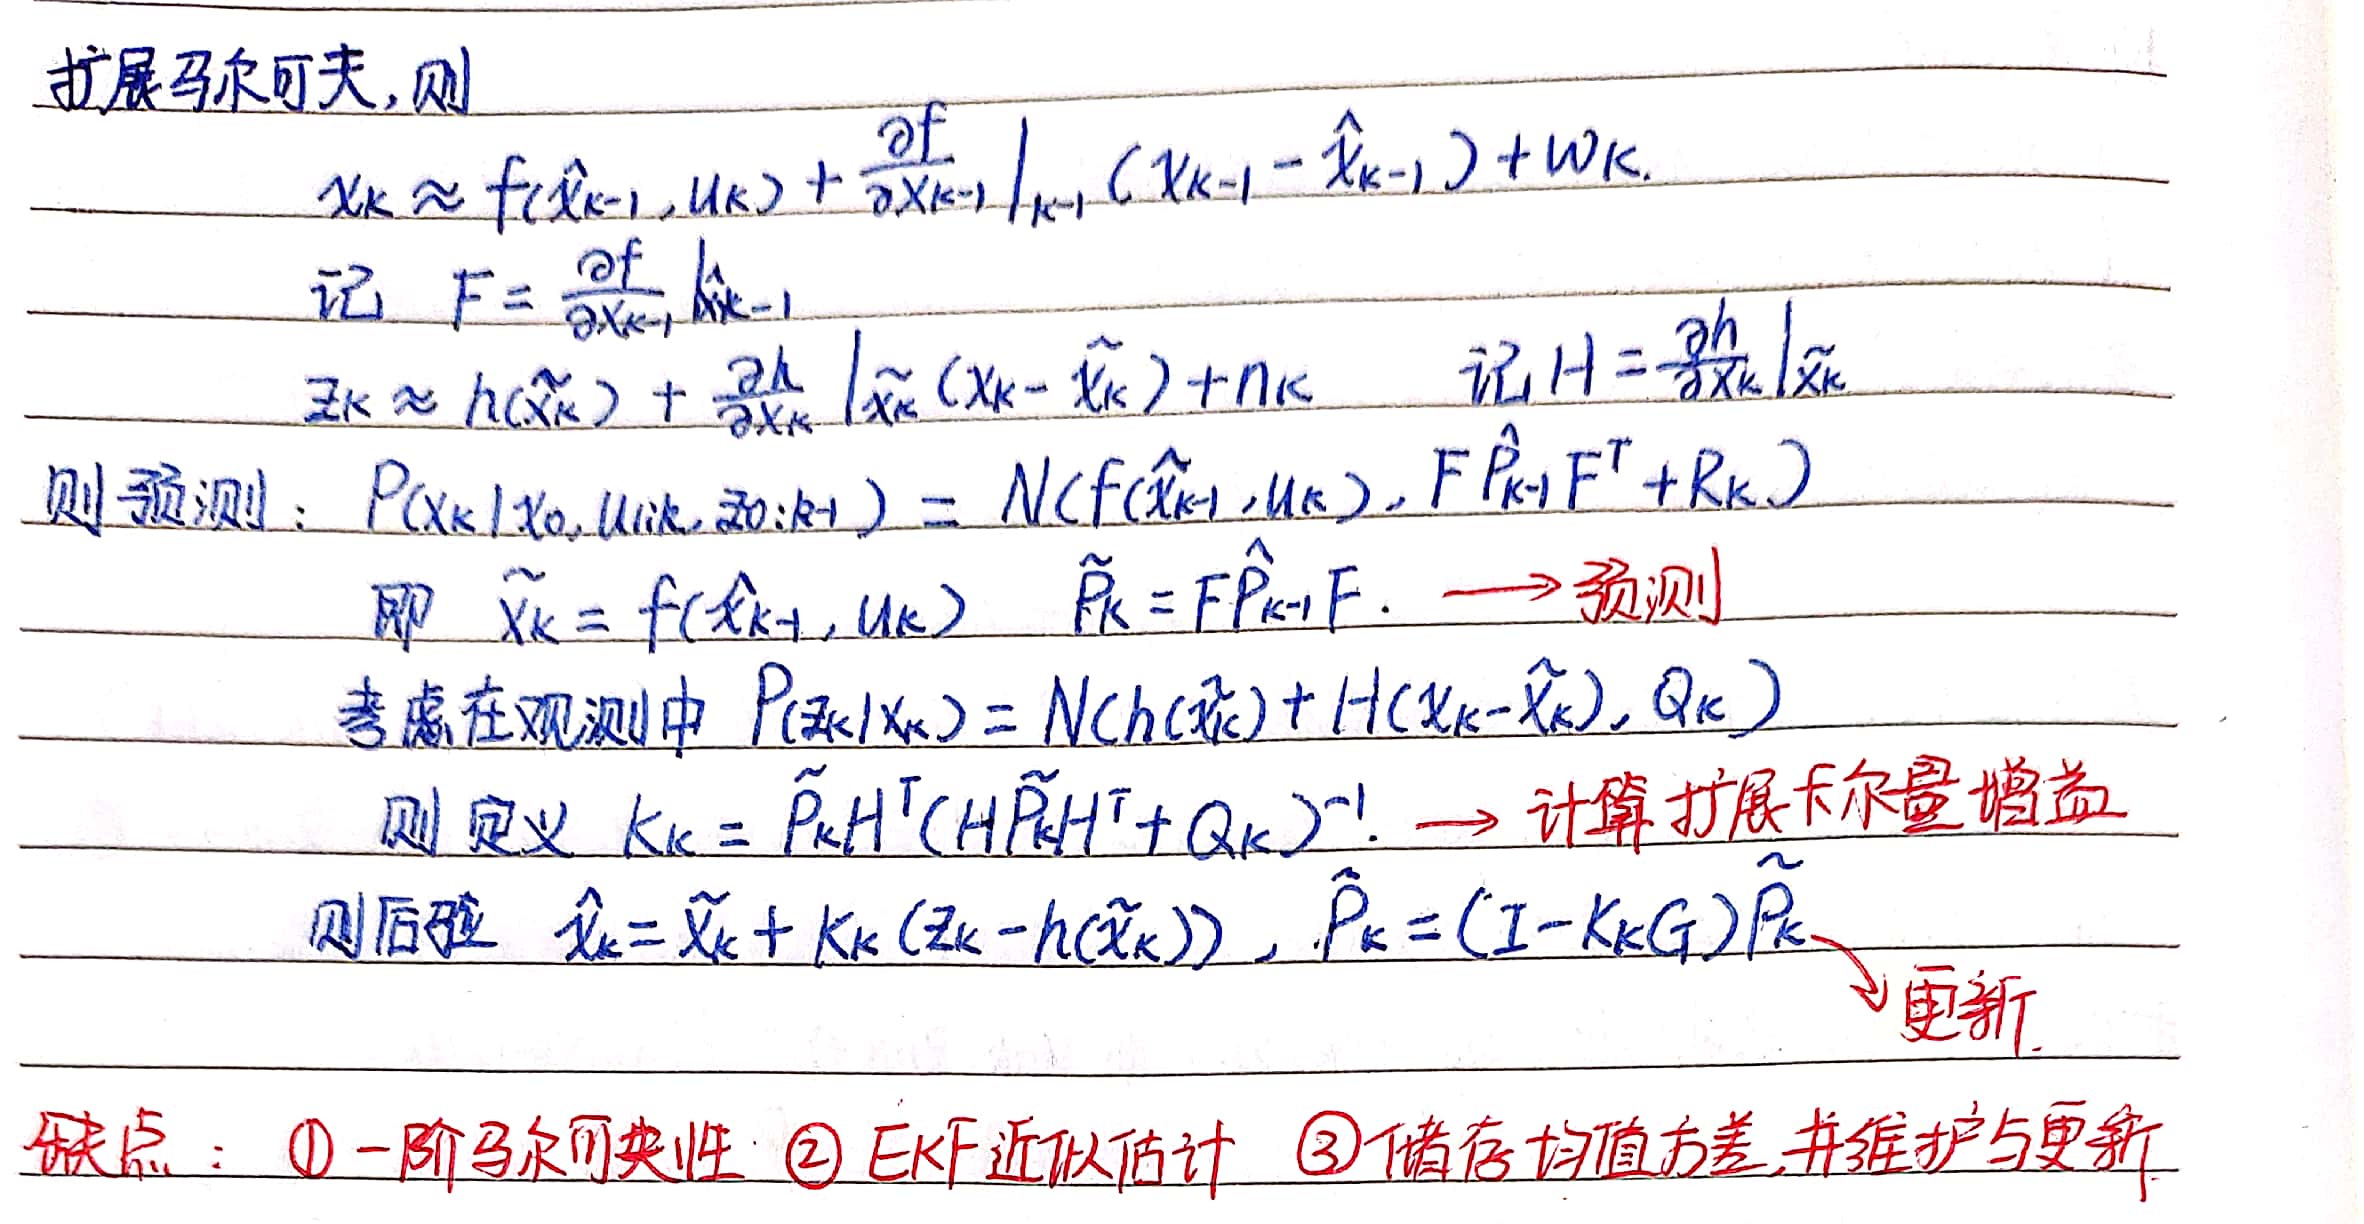 扩展马尔可夫,则
xₖ ≈ f(x̂ₖ₋₁, uₖ) + ∂f/∂xₖ₋₁ |ₖ₋₁ (xₖ₋₁ - x̂ₖ₋₁) + wₖ.
记 F = ∂f/∂xₖ₋₁ |x̂ₖ₋₁
zₖ ≈ h(x̃ₖ) + ∂h/∂xₖ |x̃ₖ (xₖ - x̃ₖ) + nₖ 记 H = ∂h/∂xₖ |x̃ₖ
则预测: P(xₖ|x₀, u₁:ₖ, z₀:ₖ₋₁) = N(f(x̂ₖ₋₁, uₖ), F P̂ₖ₋₁ Fᵀ + Rₖ)
即 x̃ₖ = f(x̂ₖ₋₁, uₖ) P̃ₖ = F P̂ₖ₋₁ F. → 预测
考虑在观测中 P(zₖ|xₖ) = N(h(x̃ₖ) + H(xₖ - x̃ₖ), Qₖ)
则定义 Kₖ = P̃ₖHᵀ(HP̃ₖHᵀ + Qₖ)⁻¹. → 计算扩展卡尔量增益
则后验 x̂ₖ = x̃ₖ + Kₖ(zₖ - h(x̃ₖ)), P̂ₖ = (I - KₖG)P̃ₖ
更新.
缺点: ① 一阶马尔可夫性 ② EKF近似估计 ③ 储存均值方差,并维护与更新